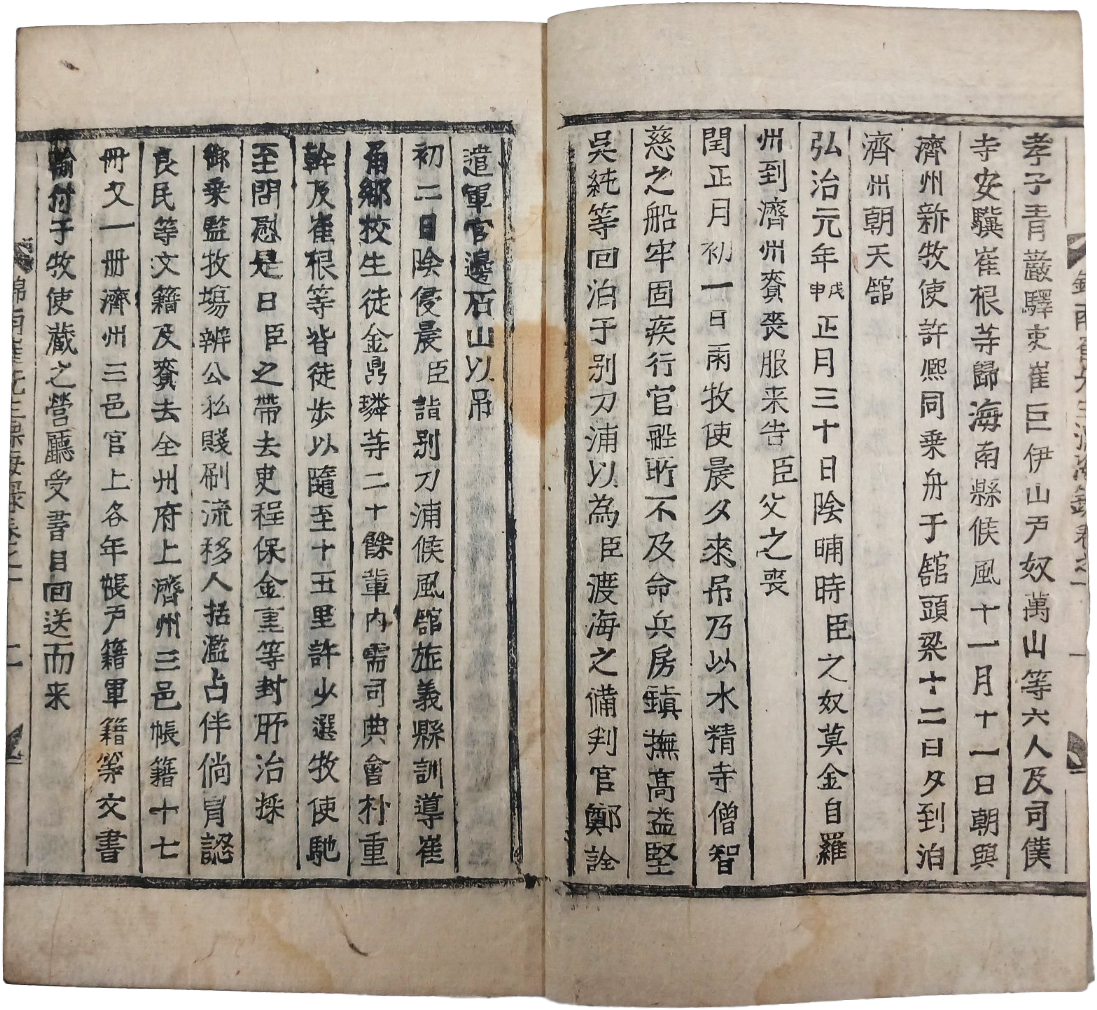 孝子青巖驛吏崔巨伊山戶奴萬山等六人及司僕
寺安驥崔根等歸海南縣候風十一月十一日朝與
濟州新牧使許熙同乘舟于舘頭梁十二日夕到泊
濟州朝天舘
弘治元年戊申正月三十日陰晡時臣之奴莫金自羅
州到濟州賫喪服来告臣父之喪
閏正月初一日雨牧使晨夕來吊乃以水精寺僧智
慈之船牢固疾行官舩所不及命兵房鎮撫高益堅
吳純等回泊于别刀浦以為臣渡海之備判官鄭詮
遣軍官邊石山以吊
初二日陰侵晨臣詣别刀浦候風舘㫌義縣訓導崔
角鄉校生徒金鼎璘等二十餘軰内需司典會朴重
幹及崔根等皆徒步以隨至十五里許少選牧使馳
至問慰是日臣之帶去吏程保金重等封所治採
鄉乗監牧塲辨公私賤刷流移人括濫占伴倘冐認
良民等文籍及賫去全州府上濟州三邑帳籍十七
冊又一册濟州三邑官上各年帳戶籍軍籍等文書
輸付于牧使藏之營廳受書目回送而来
錦南崔先生漂海錄卷之一
一
錦南崔先生漂海錄卷之一
二